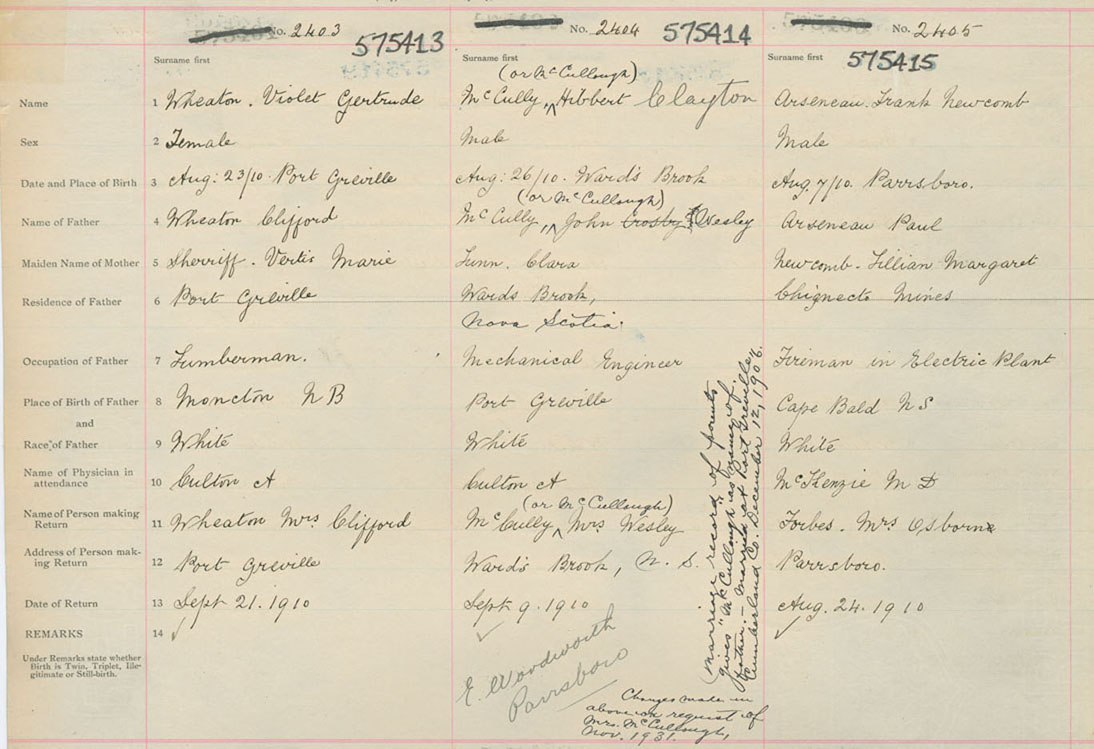 No. 2403 575413 No. 2404 575414 No. 2405
Surname first Surname first Surname first 575415
(or McCullough)
Name 1 Wheaton. Violet Gertrude McCully, ^ Hibbert Clayton Arseneau. Frank Newcomb
Sex 2 Female Male Male
Date and Place of Birth 3 Aug: 23/10. Port Greville Aug: 26/10. Ward's Brook Aug. 7/10. Parrsboro.
(or McCullough)
Name of Father 4 Wheaton Clifford McCully, ^ John Crosby Wesley Arseneau Paul
Maiden Name of Mother 5 Sherriff. Vertis Marie Lunn. Clara Newcomb. Lillian Margaret
Residence of Father 6 Port Greville Wards Brook, Chignecto Mines
Nova Scotia.
Occupation of Father 7 Lumberman. Mechanical Engineer Fireman in Electric Plant
Place of Birth of Father 8 Moncton N B Port Greville Cape Bald N S
and
Race of Father 9 White White White
Name of Physician in
attendance 10 Culton A Culton A McKenzie M D
(or McCullough)
Name of Person making
Return 11 Wheaton Mrs Clifford McCully, ^ Mrs. Wesley Forbes. Mrs Osborne
Address of Person mak-
ing Return 12 Port Greville Ward's Brook, N. S. Parrsboro.
Date of Return 13 Sept 21. 1910 Sept 9. 1910 Aug. 24. 1910
REMARKS 14
Under Remarks state whether
Birth is Twin, Triplet, Ille-
gitimate or Still-birth.
(Marriage record of parents
gives "McCullough" as name of
father. - Married at Port Greville,
Cumberland Co. December 12, 1906.
E. Woodworth
Parrsboro
Changes made in
above on request of
Mrs. McCullough,
Nov. 1931.